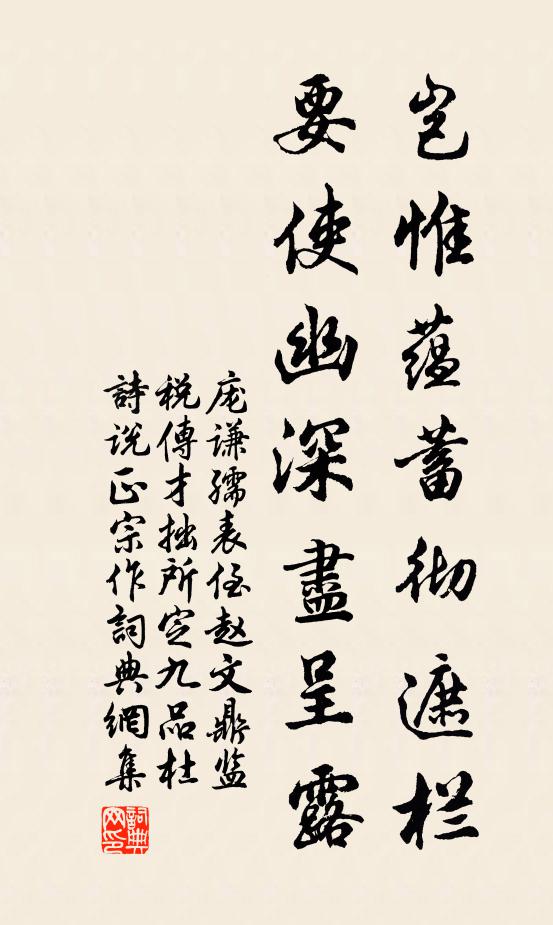 岂惟蕴蓄彻遮栏
要使幽深盡呈露
庞谦孺表侄赵文鼎监
税傳才拙所定九品杜
詩说正宗作詞典網集
詞典網印